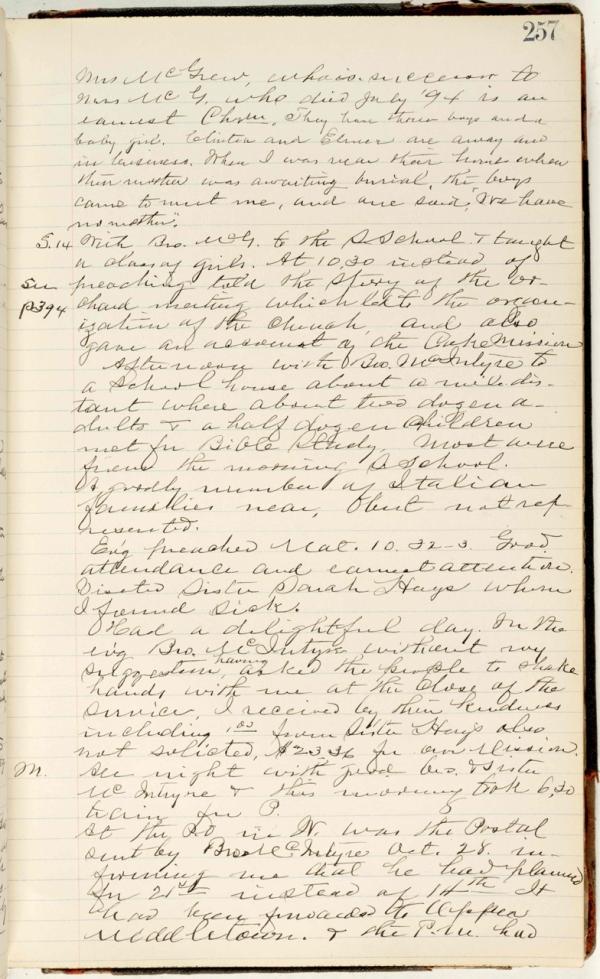 257
Mrs McGrew, who is successor to
Mrs McG. who died July '94 is an
earnest Chrstn. They have three boys and a
baby girl. Clinton and Elmer are away and
in business. When I was near their home when
their mother was awaiting burial, the boys
came to meet me, and one said, "We have
no mother".
S. 14 With Bro. McG. to the S School. & taught
a class of girls. At 10.30 instead of
See preaching told the story of the or-
p394 chard meeting which led to the organ-
ization of the church, and also
gave an account of the Mission
Afternoon with Bro. McIntyre to
a School house about a mile dis-
tant where about two dozen a-
dults & a half dozen children
met for Bible Study. Most were
from the morning S School.
A goodly number of Italian
families near, but not rep
resented.
Ev'g preached Mat. 10. 32-3. Good
attendance and earnest attention.
Visited Sister Sarah Hays whom
I found sick.
Had a delightful day. In the
ev'g Bro. McIntyre without my
suggestion, having asked the people to shake
hands with me at the close of the
service, I received by their kindness
including 1.00 from Sister Hays also
not solicited, $23.36 for our Mission.
M. All night with good bro. & Sister
McIntyre & this morning took 6,30
train for P.
At the PO in N. was the Postal
sent by Bro McIntyre Oct. 28. in-
forming me that he had planned
for 21st instead of 14th It
had been forwarded to Upper
Middletown. & the P.M. had